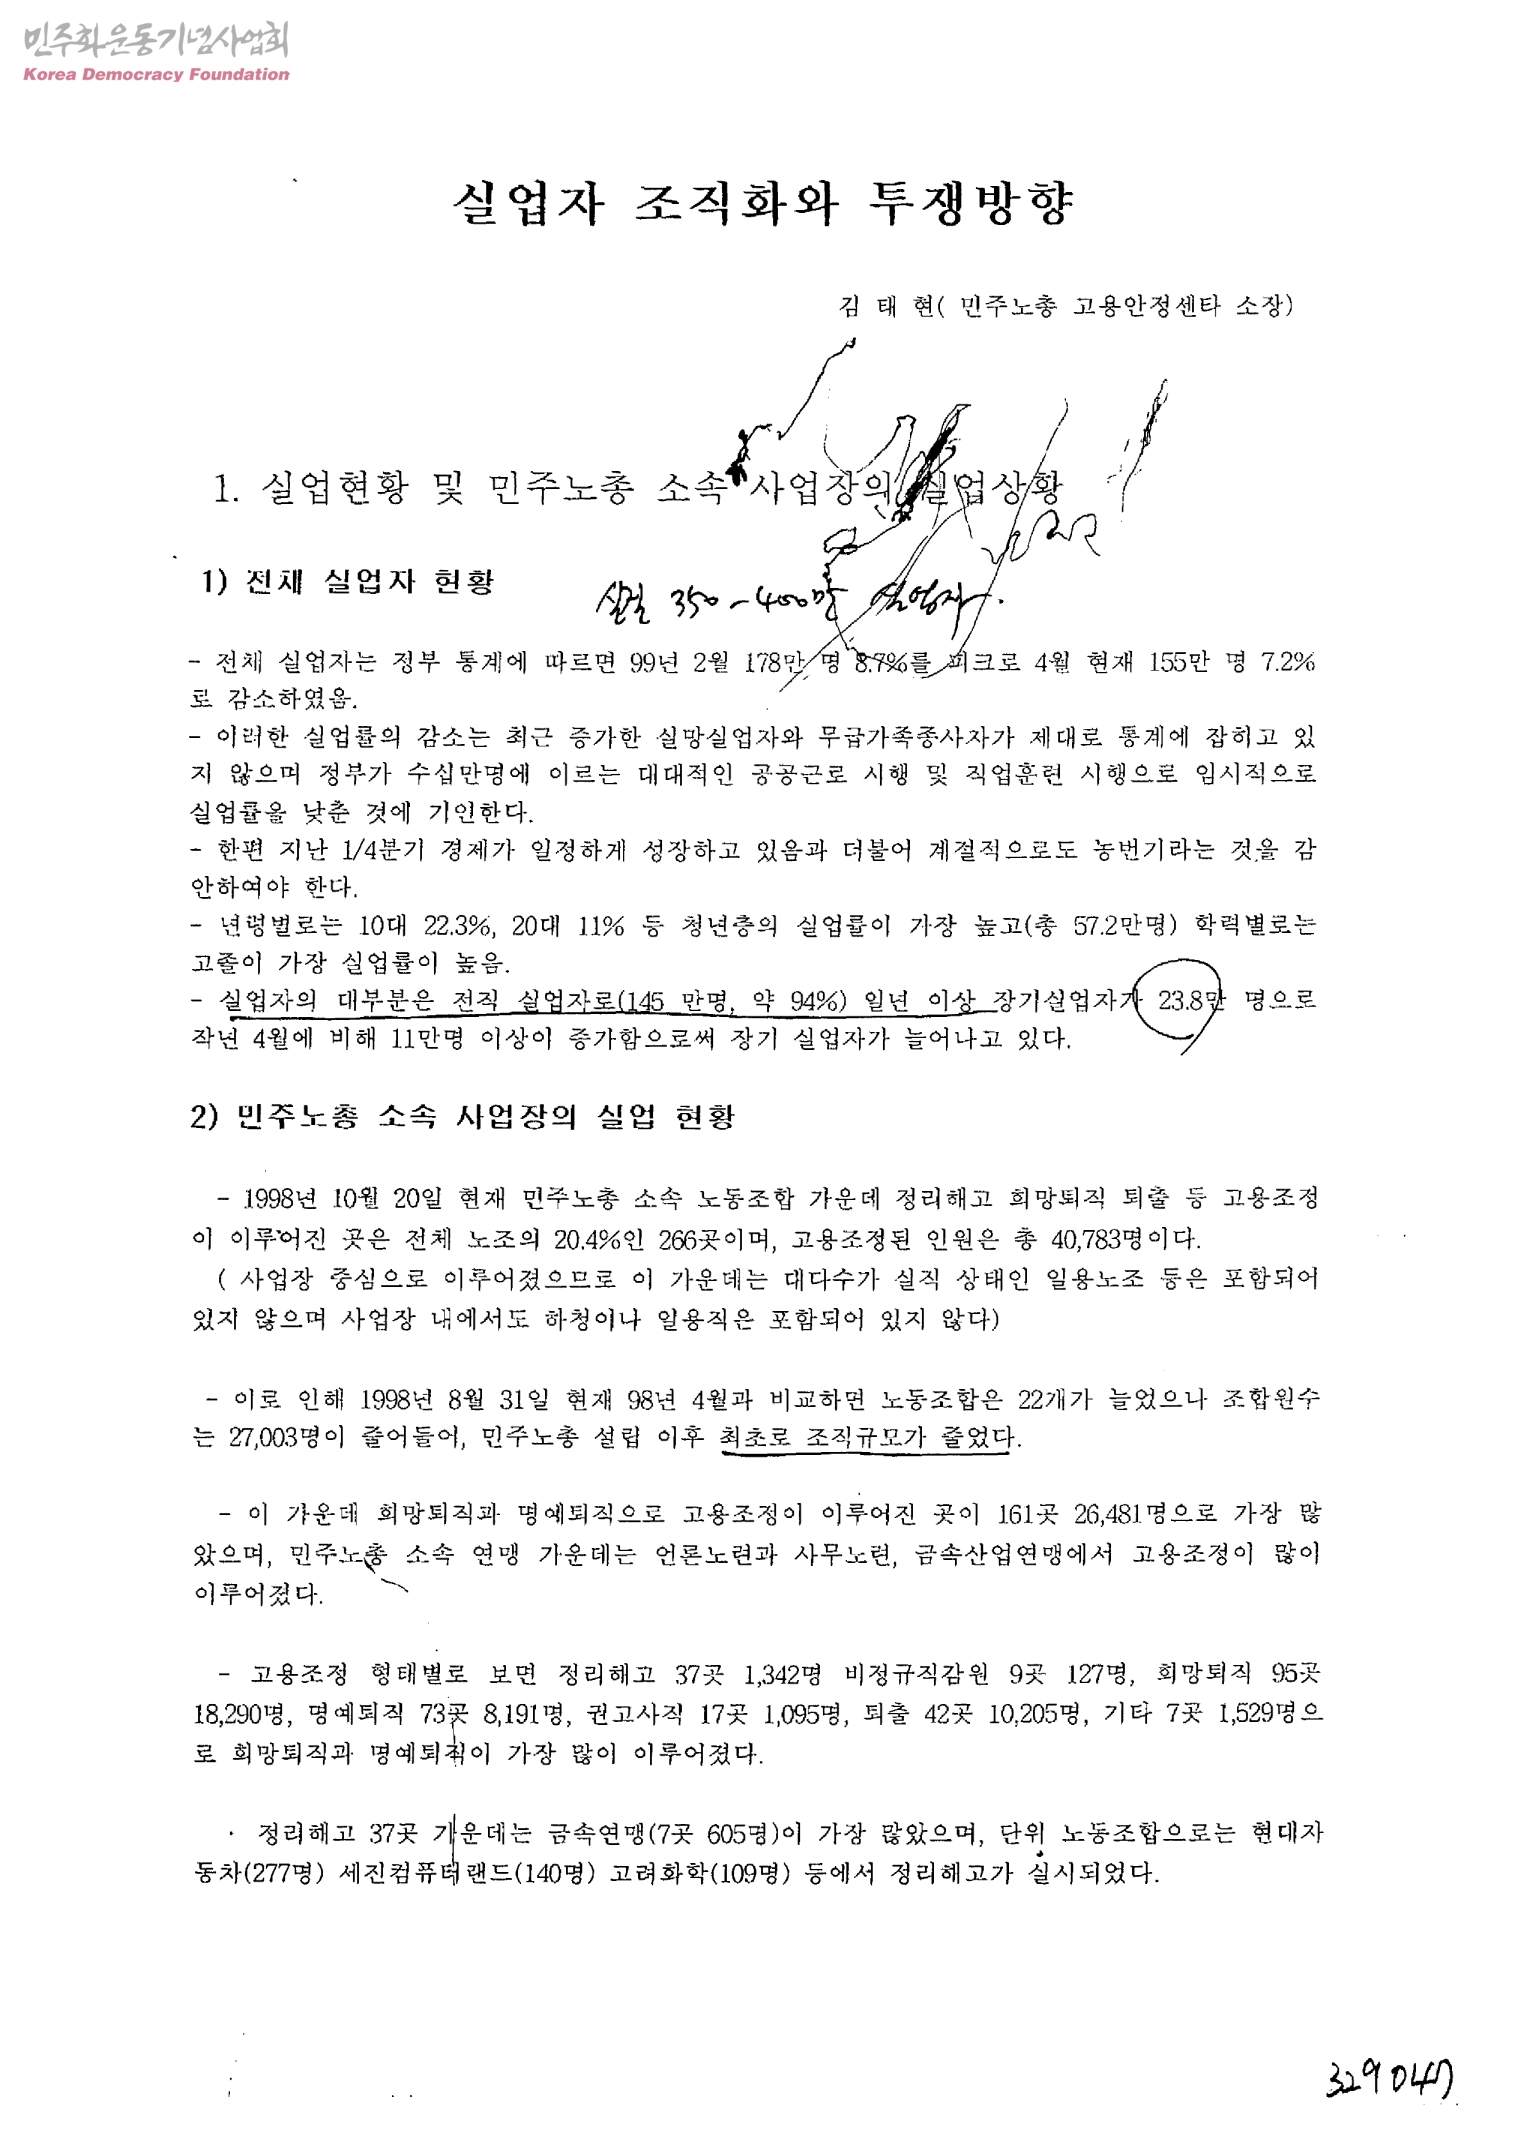 민주화운동기념사업회
Korea Democracy Foundation
실업자 조직화와 투쟁방향
김 태 현( 민주노총 고용안정센타 소장)
1. 실업현황 및 민주노총 소속 사업장의 실업상황
1) 전체 실업자 현황
실질 350-400만 실업자.
- 전체 실업자는 정부 통계에 따르면 99년 2월 178만 명 8.7%를 피크로 4월 현재 155만 명 7.2%
로 감소하였음.
- 이러한 실업률의 감소는 최근 증가한 실망실업자와 무급가족종사자가 제대로 통계에 잡히고 있
지 않으며 정부가 수십만명에 이르는 대대적인 공공근로 시행 및 직업훈련 시행으로 임시적으로
실업률을 낮춘 것에 기인한다.
- 한편 지난 1/4분기 경제가 일정하게 성장하고 있음과 더불어 계절적으로도 농번기라는 것을 감
안하여야 한다.
- 년령별로는 10대 22.3%, 20대 11% 등 청년층의 실업률이 가장 높고(총 57.2만명) 학력별로는
고졸이 가장 실업률이 높음.
- 실업자의 대부분은 전직 실업자로(145 만명, 약 94%) 일년 이상 장기실업자가 23.8만 명으로
작년 4월에 비해 11만명 이상이 증가함으로써 장기 실업자가 늘어나고 있다.
2) 민주노총 소속 사업장의 실업 현황
- 1998년 10월 20일 현재 민주노총 소속 노동조합 가운데 정리해고 희망퇴직 퇴출 등 고용조정
이 이루어진 곳은 전체 노조의 20.4%인 266곳이며, 고용조정된 인원은 총 40,783명이다.
( 사업장 중심으로 이루어졌으므로 이 가운데는 대다수가 실직 상태인 일용노조 등은 포함되어
있지 않으며 사업장 내에서도 하청이나 일용직은 포함되어 있지 않다)
- 이로 인해 1998년 8월 31일 현재 98년 4월과 비교하면 노동조합은 22개가 늘었으나 조합원수
는 27,003명이 줄어들어, 민주노총 설립 이후 최초로 조직규모가 줄었다.
- 이 가운데 희망퇴직과 명예퇴직으로 고용조정이 이루어진 곳이 161곳 26,481명으로 가장 많
았으며, 민주노총 소속 연맹 가운데는 언론노련과 사무노련, 금속산업연맹에서 고용조정이 많이
이루어졌다.
- 고용조정 형태별로 보면 정리해고 37곳 1,342명 비정규직감원 9곳 127명, 희망퇴직 95곳
18,290명, 명예퇴직 73곳 8,191명, 권고사직 17곳 1,095명, 퇴출 42곳 10,205명, 기타 7곳 1,529명으
로 희망퇴직과 명예퇴직이 가장 많이 이루어졌다.
· 정리해고 37곳 가운데는 금속연맹(7곳 605명)이 가장 많았으며, 단위 노동조합으로는 현대자
동차(277명) 세진컴퓨터랜드(140명) 고려화학(109명) 등에서 정리해고가 실시되었다.
329047